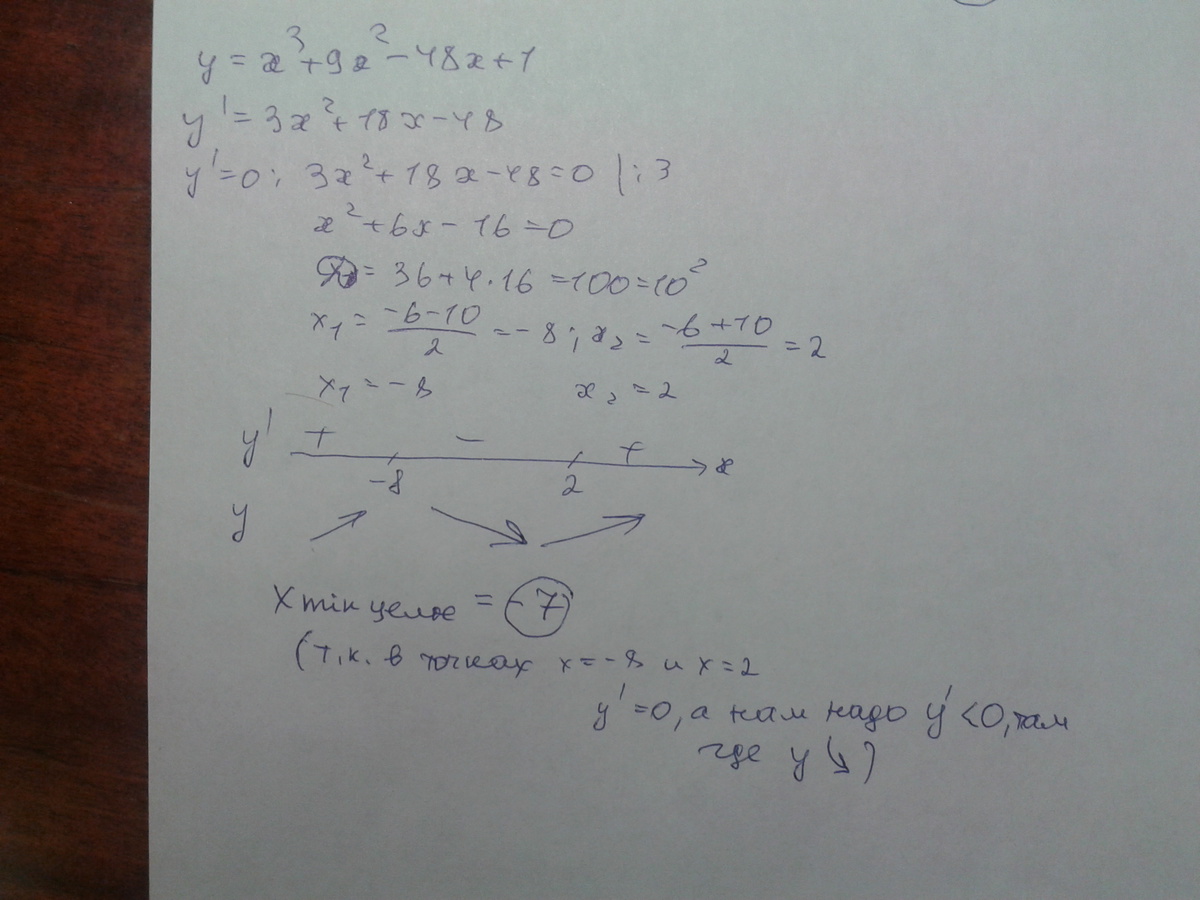 y = x³+9x²-48x+1
y' = 3x²+18x-48
y'=0; 3x²+18x-48=0 |:3
x²+6x-16=0
D = 36+4·16=100=10²
x₁ = (-6-10)/2 = -8; x₂ = (-6+10)/2 = 2
x₁ = -8 x₂ = 2
y' + - +
-8 2 x
y
Xmin целое = -7
(т.к. в точках x=-8 и x=2
y'=0, а нам надо y'<0, там
где y ↘)